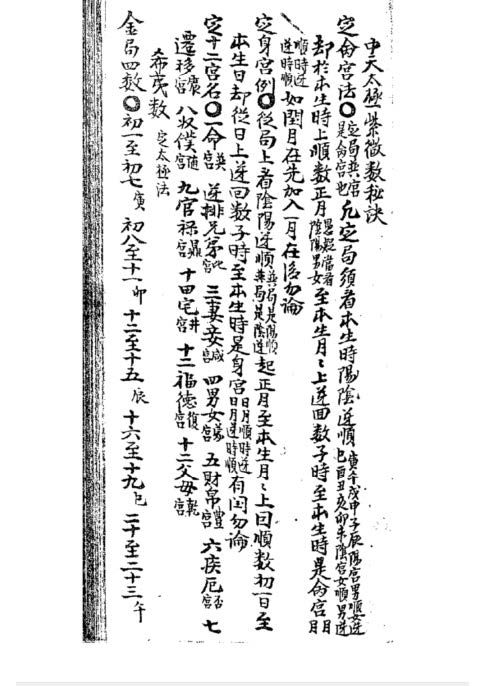 中天太極紫微數秘訣
定命宮法○定局共宮是命宮也凡定局須看本生時陽陰逆順寅午戌申子辰陽宮男順女逆巳酉丑亥卯未陰宮女順男逆
却於本生時上順數正月陰陽男女至本生月月上逆回數子時至本生時是命宮日月
順時逆逆時順如閏月在先加入一月在後勿論
定身宮例○從局上看陰陽逆順其局是陽順其局是陰逆起正月至本生月月上回順數初一日至
本生日却從日上逆回數子時至本生時是身宮日月順時逆日月逆時順有閏勿論
定十二宮名○一命宮 逆排兄弟宮 三妻妾宮咸 四男女宮 五財帛宮豊 六疾厄宮否 七
遷移宮 八奴僕宮隨 九官祿宮 十田宅宮井 十一福德宮復 十二父母宮乾
希夷數定太極法
金局四數○初一至初七寅 初八至十一卯 十二至十五辰 十六至十九巳 二十至二十三午